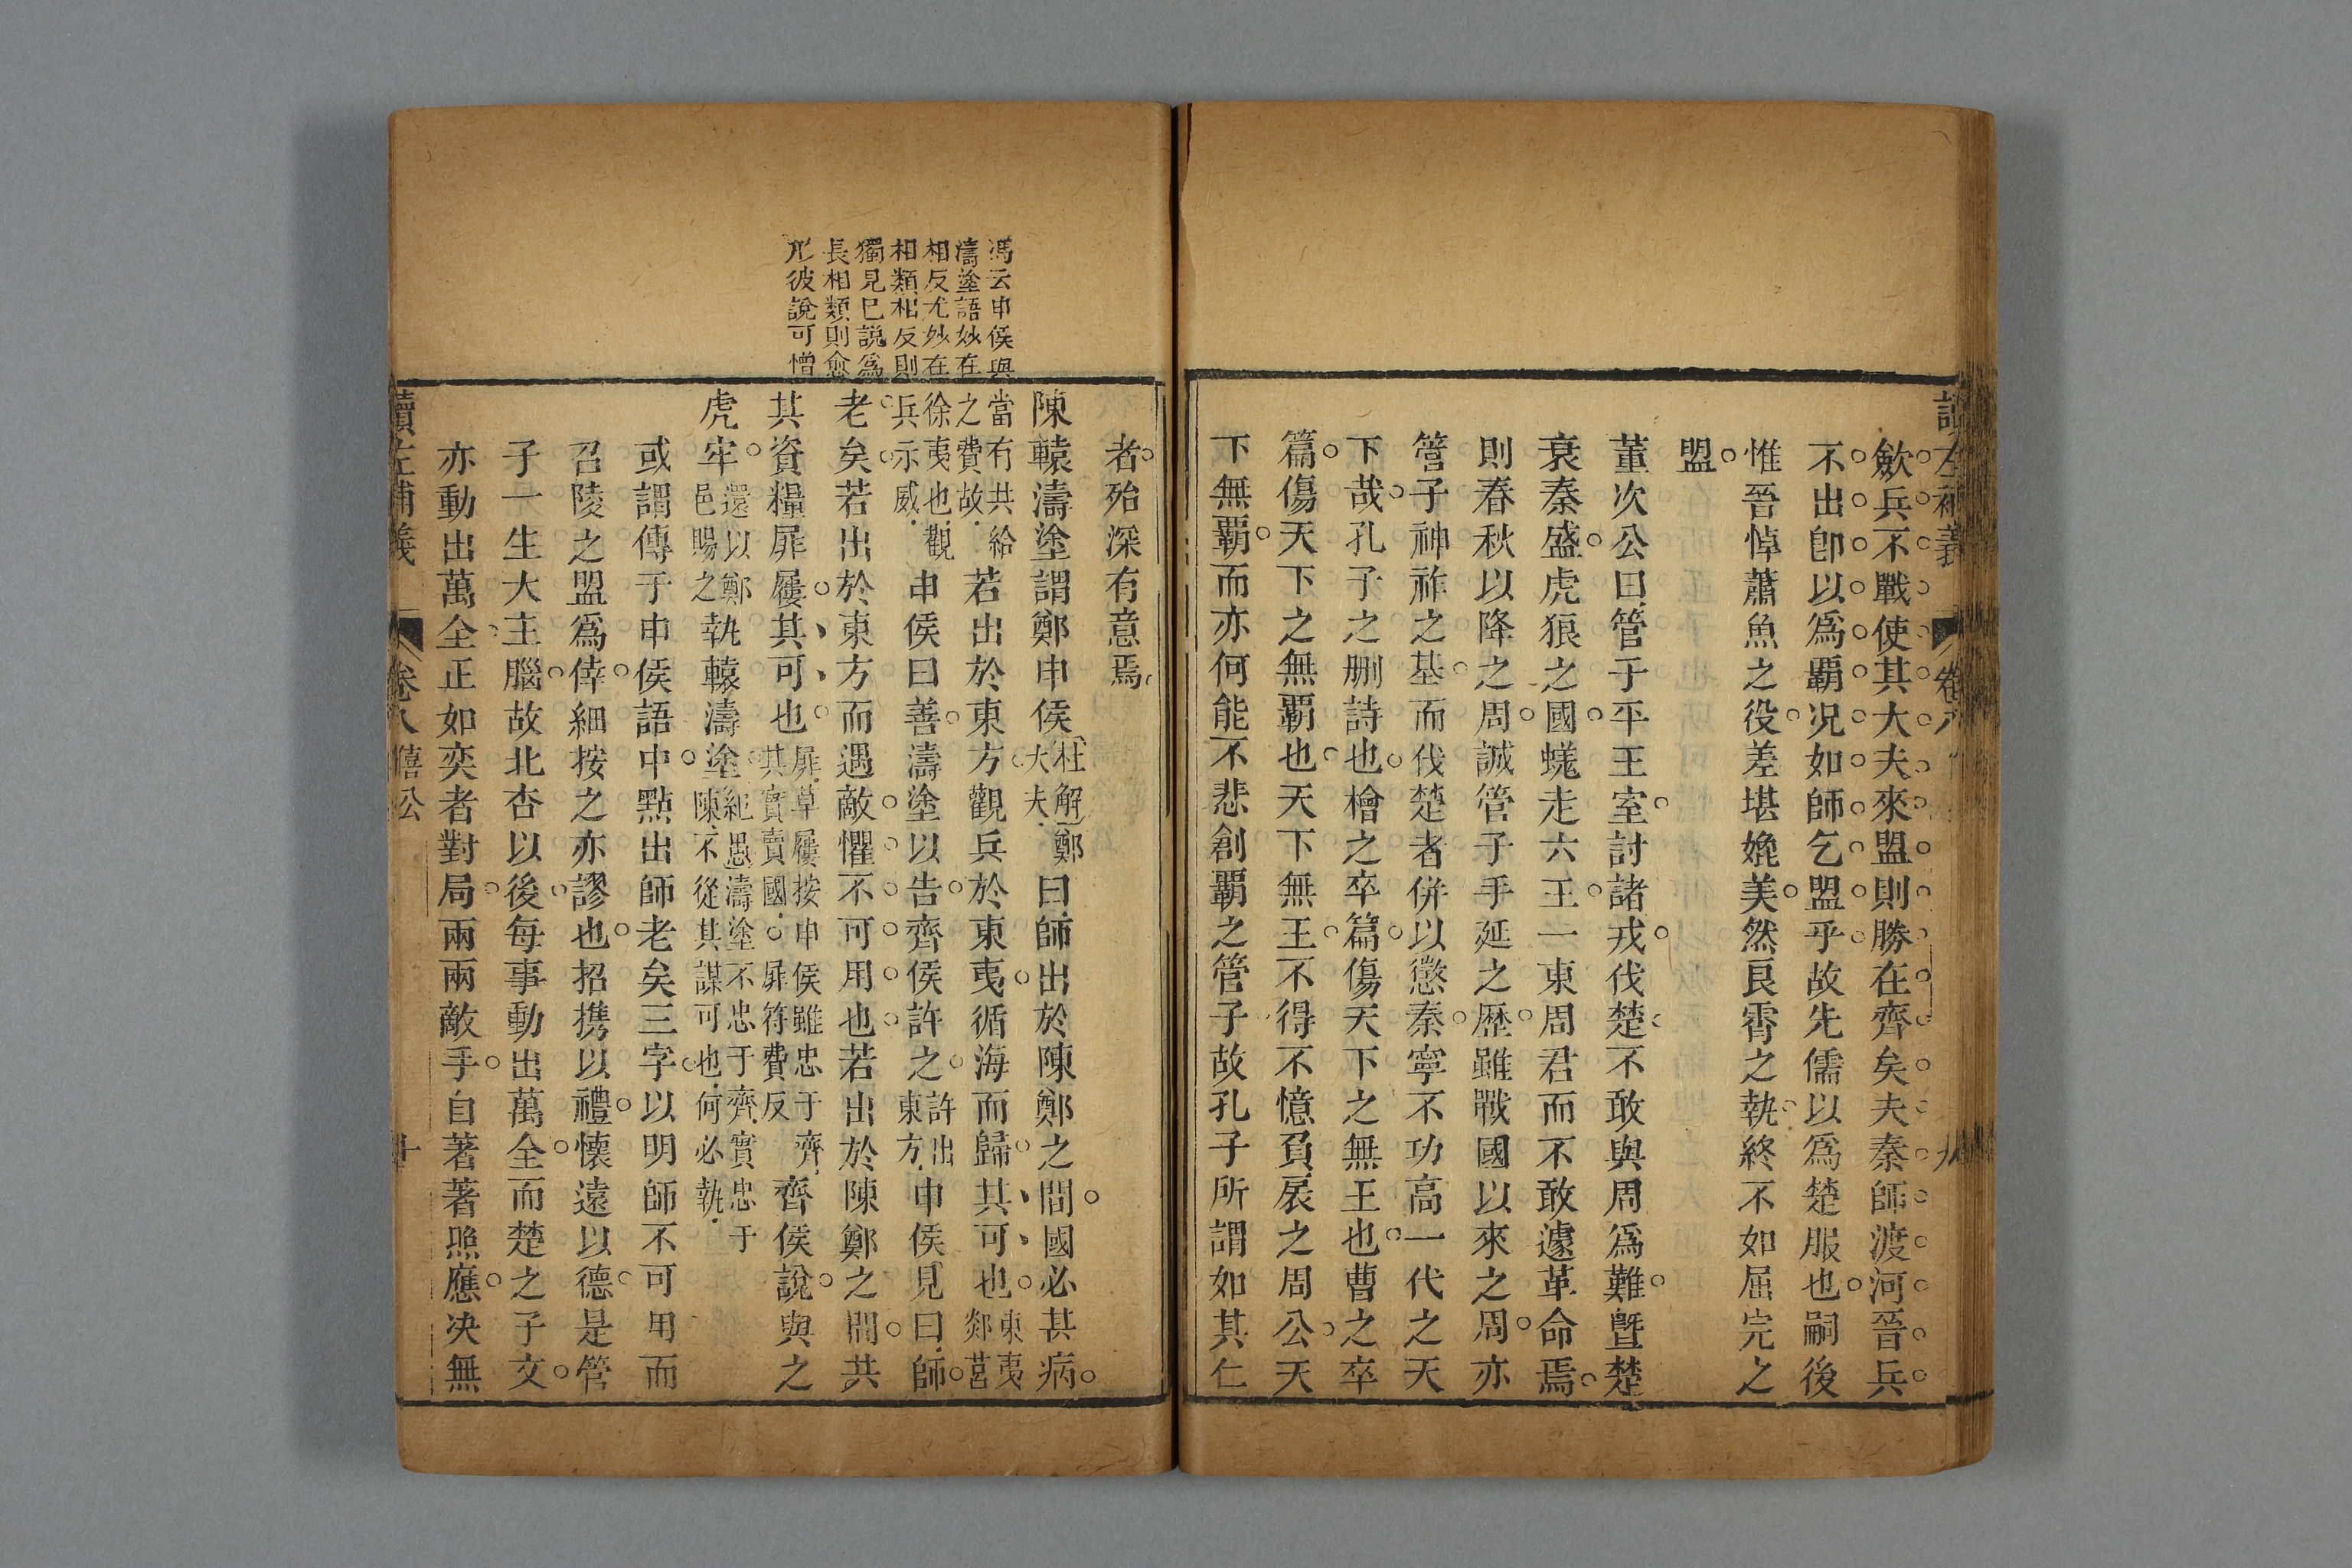 左補義
卷八
九
歛兵不戰使其大夫來盟則勝在齊矣夫秦師渡河晉兵
不出卽以爲覇况如師乞盟乎故先儒以爲楚服也嗣後
惟晉悼蕭魚之役差堪媲美然良霄之執終不如屈完之
盟
董次公曰管子平王室討諸戎伐楚不敢與周爲難曁楚
衰秦盛虎狼之國蠭走六王一東周君而不敢遽革命焉
則春秋以降之周誠管子手延之歷雖戰國以來之周亦
管子神祚之基而伐楚者併以懲秦寧不功高一代之天
下哉孔子之刪詩也檜之卒篇傷天下之無王也曹之卒
篇傷天下之無覇也天下無王不得不憶負扆之周公天
下無覇而亦何能不悲創覇之管子故孔子所謂如其仁
者殆深有意焉
馮云申侯與
濤塗語妙在
相反尤妙在
相類相反則
獨見巳說爲
長相類則愈
形彼說可憎
陳轅濤塗謂鄭申侯杜解鄭大夫曰師出於陳鄭之間國必甚病
當有共給之費故若出於東方觀兵於東夷循海而歸其可也東夷郯莒
徐夷也觀兵示威申侯曰善濤塗以告齊侯許之許出東方申侯見曰師
老矣若出於東方而遇敵懼不可用也若出於陳鄭之間共
其資糧屝屨其可也屝草屨按申侯雖忠于齊其實賣國屝符費反齊侯說與之
虎牢還以鄭邑賜之執轅濤塗紀愚濤塗不忠于齊實忠于陳不從其謀可也何必執
或謂傳于申侯語中點出師老矣三字以明師不可用而
召陵之盟爲倖細按之亦謬也招携以禮懷遠以德是管
子一生大主腦故北杏以後每事動出萬全而楚之子文
亦動出萬全正如奕者對局兩兩敵手自著著照應决無
讀左補義
卷八
僖公
十